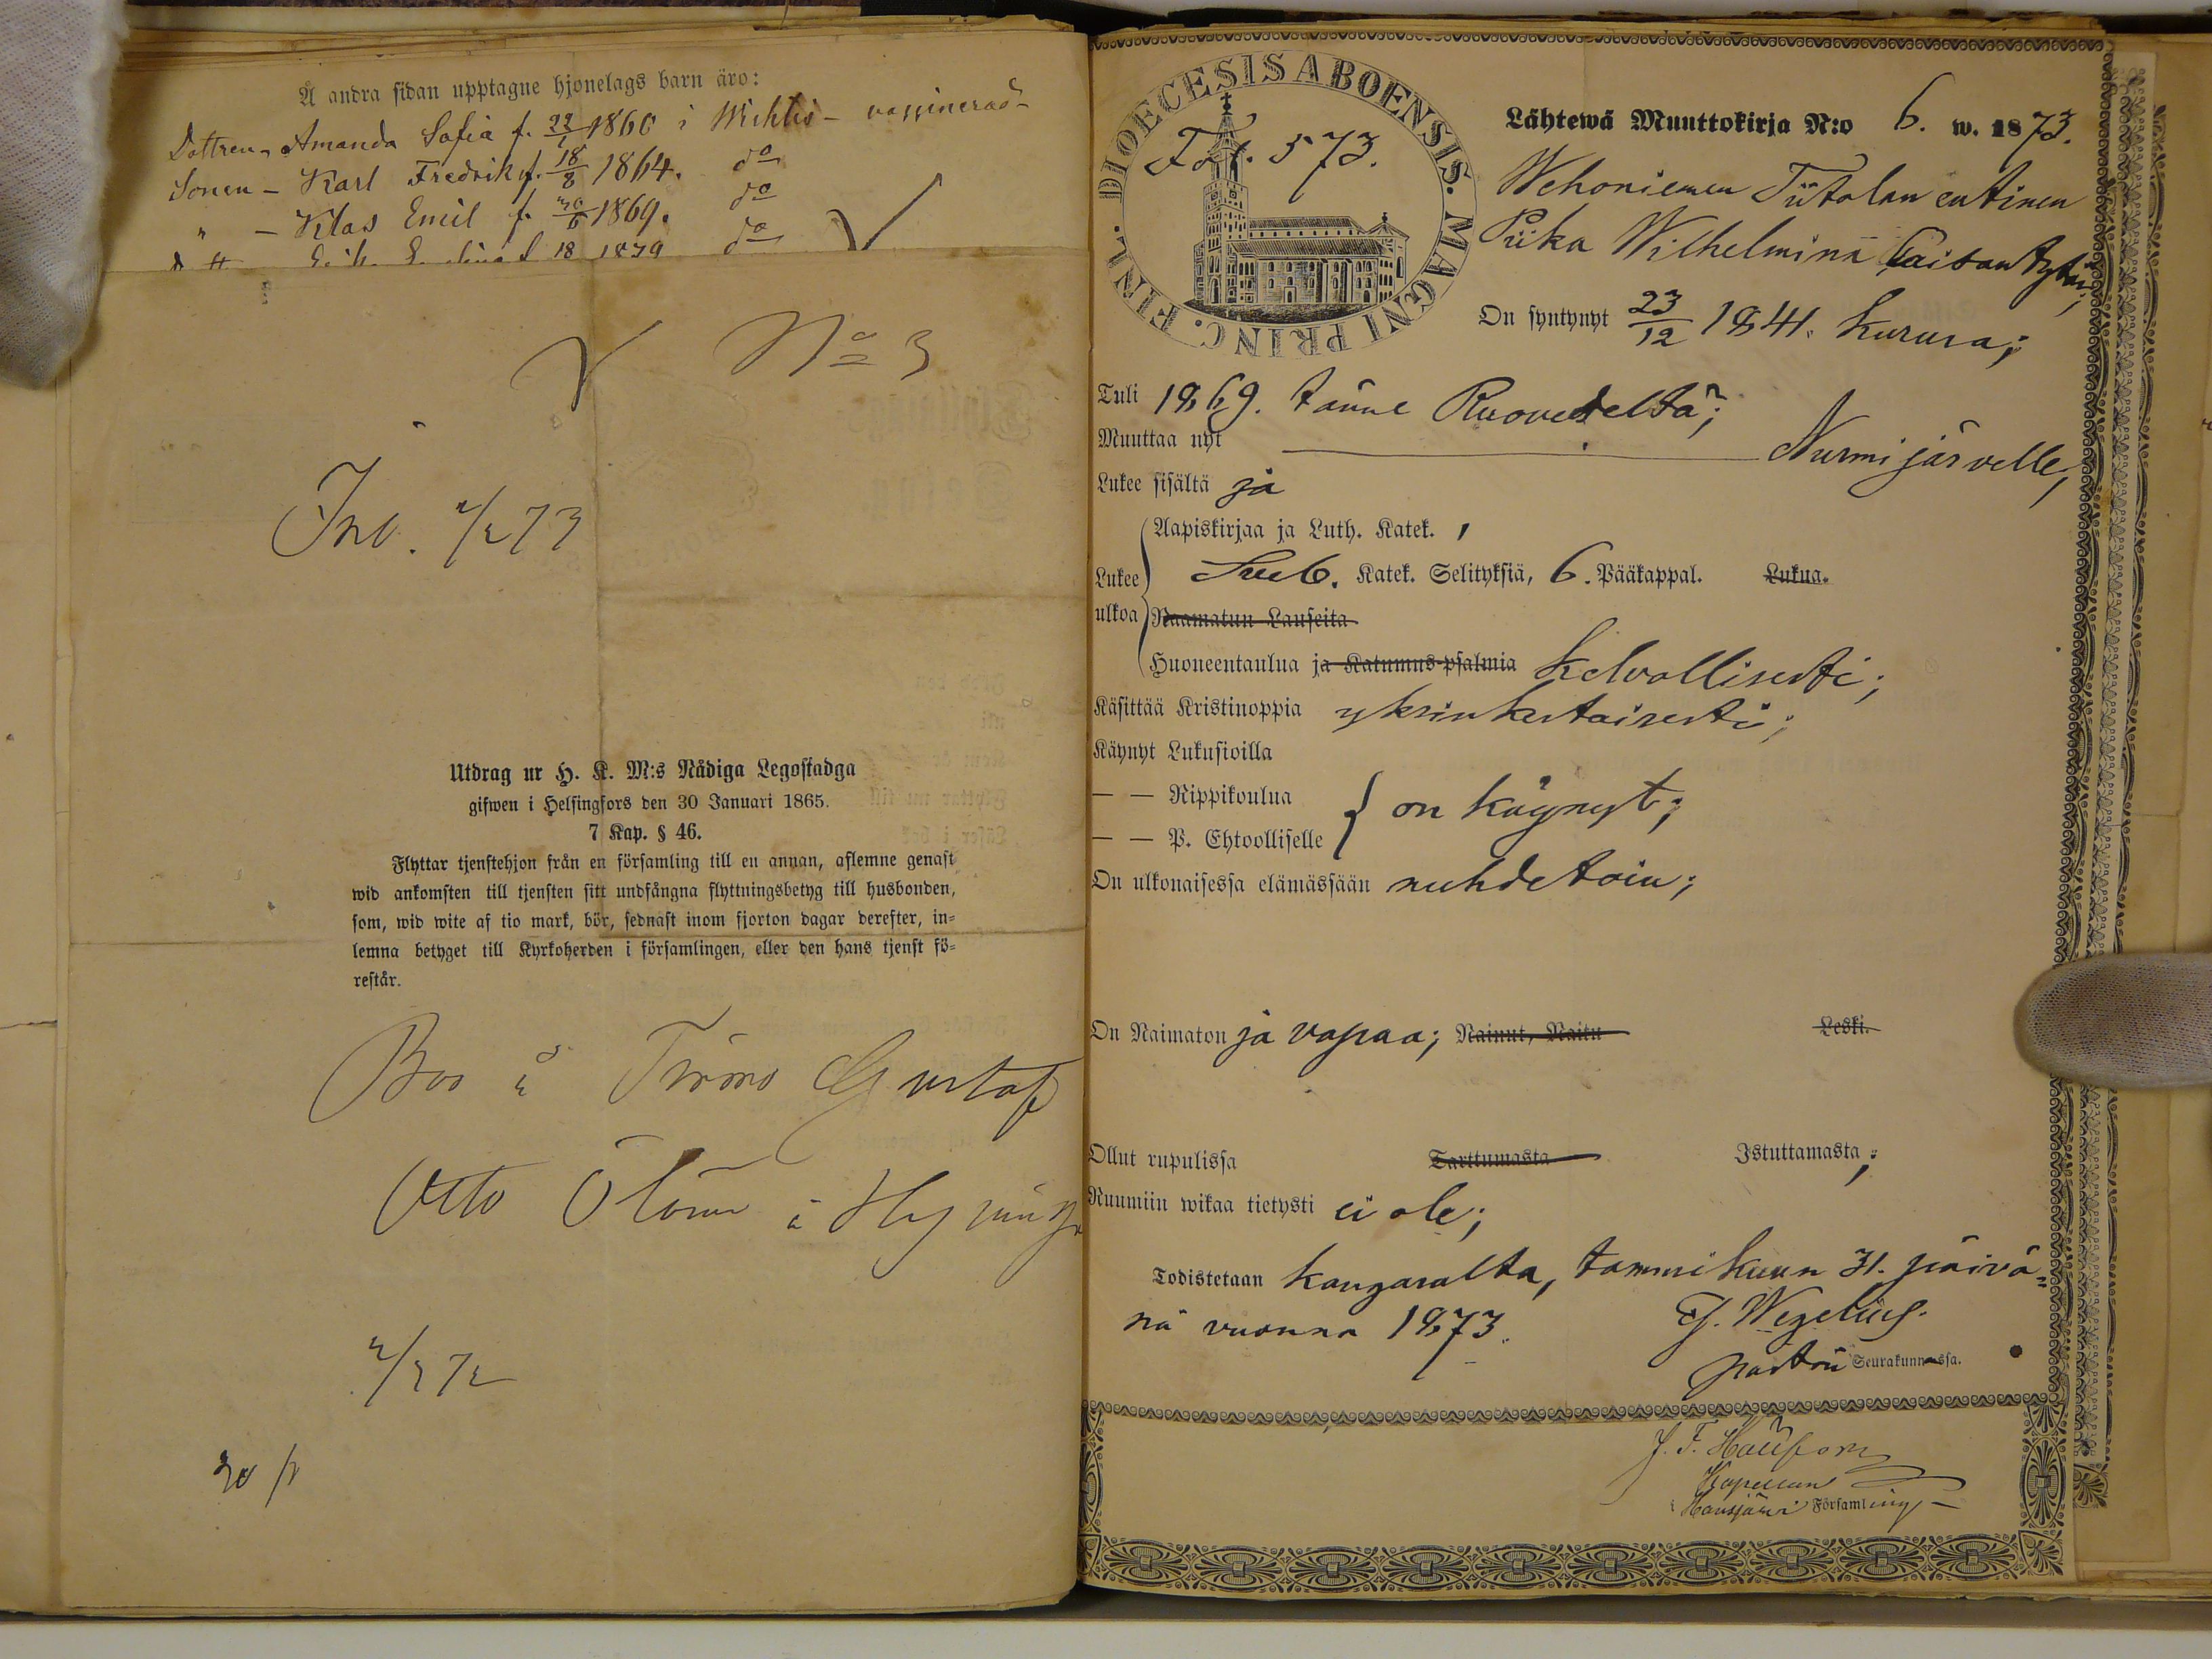 Å andra sidan upptagne hjonelags barn äro:
Dottren, Amanda Sofia f. 1860 i Wichtis - vaccinerad -
Sonen - Karl Fredrik f. 18/8 1864. do
" - Klas Emil f. 30/6 1869. do
18 1879 do
No 3
Inl. 2/2 73
Utdrag ur H. K. M:s Nådiga Legostadga
gifwen i Helsingfors den 30 Januari 1865.
7 Kap. § 46.
Flyttar tjenstehjon från en församling till en annan, aflemne genast
wid ankomsten till tjensten sitt undfångna flyttningsbetyg till husbonden,
som, wid wite af tio mark, bör, sednast inom fjorton dagar derefter, in=
lemna betyget till Kyrkoherden i församlingen, eller den hans tjenst fö=
restår.
Gustaf
Otto
DIOECESIS ABOENSIS. MAGNI PRINC. FINL.
Fol. 573.
Lähtewä Muuttokirja N:o 6. w. 1873.
Wehoniemen Tiitolan entinen
Piika Wilhelmina
On syntynyt 23/12 1841. Kurussa;
Tuli 1869. tänne Ruovedeltä;
Muuttaa nyt Nurmijärvelle,
Lukee sisältä ja
Aapiskirjaa ja Luth. Katek. ,
Lukee Sveb. Katek. Selityksiä, 6. Pääkappal. Lukua.
ulkoa Raamatun Lauseita
Huoneentaulua ja Katumus-psalmia kelvollisesti;
Käsittää Kristinoppia yksinkertaisesti;
Käynyt Lukusioilla
— — Rippikoulua on käynyt;
— — P. Ehtoolliselle
On ulkonaisessa elämässään nuhdetoin;
On Naimaton ja vapaa; Nainut, Naitu Leski.
Ollut rupulissa Tarttumasta Istuttamasta;
Ruumiin wikaa tietysti ei ole;
Todistetaan Kangasalta, tammikuun 31. päivä=
nä vuonna 1873. Wegelius.
pastori Seurakunnassa.
J. F.
Kapellan
Hausjärvi Församling